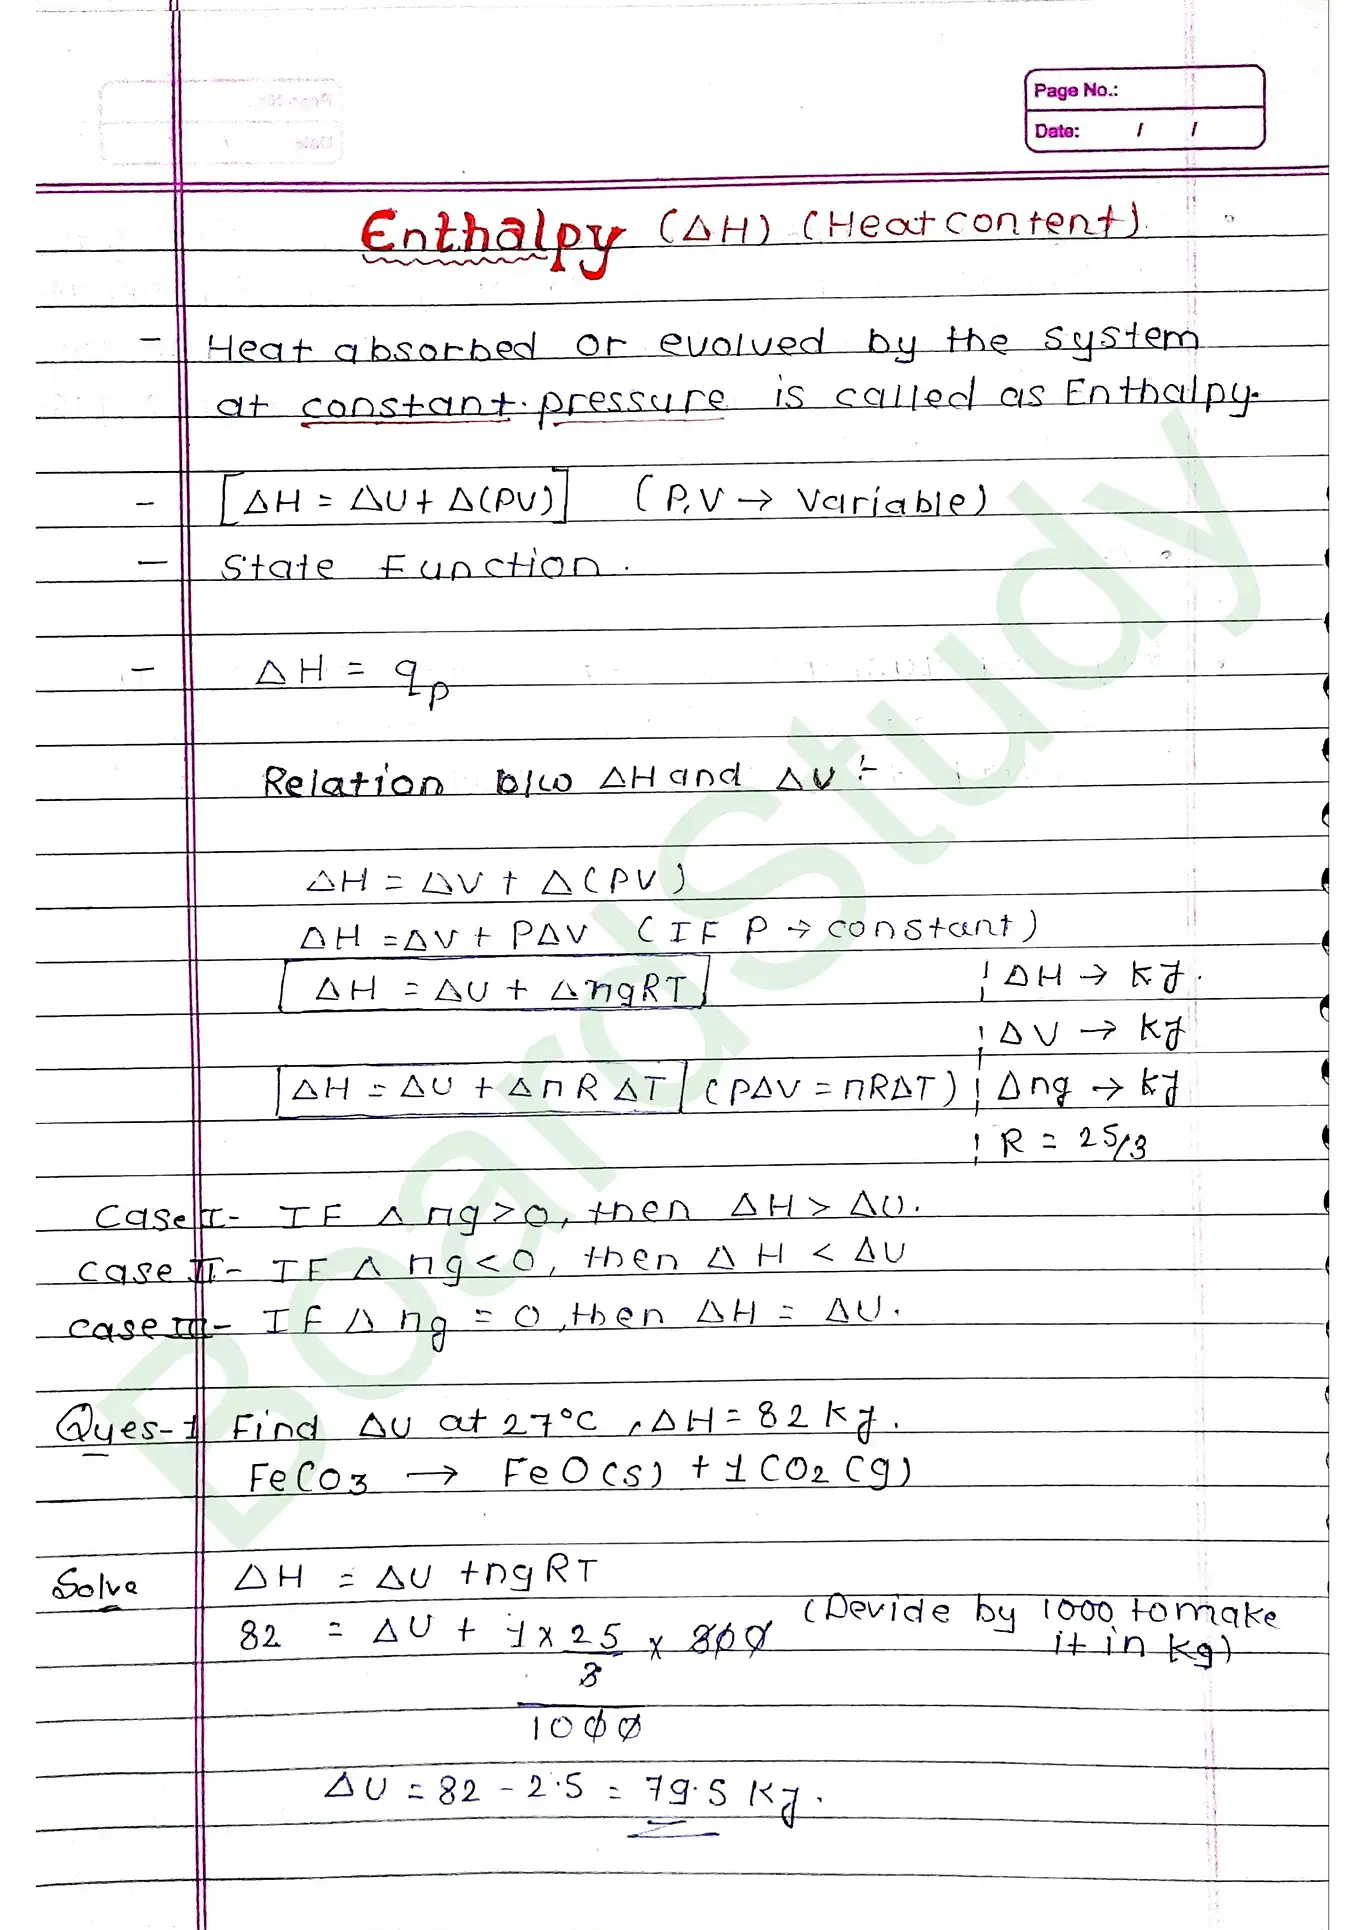 Page No.:
Date: / /
Enthalpy (ΔH) (Heat content).
- Heat absorbed or evolved by the system
at constant pressure is called as Enthalpy.
- [ΔH = ΔU + Δ(PV)] (P,V → Variable)
- State Function.
- ΔH = qp
Relation b/w ΔH and ΔU :-
ΔH = ΔV + Δ(PV)
ΔH = ΔV + PΔV (IF P → constant)
ΔH = ΔU + ΔngRT | ΔH → KJ.
| ΔV → KJ
ΔH = ΔU + ΔnRΔT (PΔV = nRΔT) | Δng → KJ
| R = 25/3
Case I - IF Δng>0, then ΔH > ΔU.
case II - IF Δng<0, then ΔH < ΔU
case III - IF Δng = 0, then ΔH = ΔU.
Ques-1 Find ΔU at 27°C, ΔH = 82 KJ.
FeCO3 → FeO(s) + 1CO2(g)
Solve ΔH = ΔU + ngRT
82 = ΔU + 1 x 25 x 300 (Devide by 1000 to make
it in Kg)
3
1000
ΔU = 82 - 2.5 = 79.5 KJ.
BoardStudy